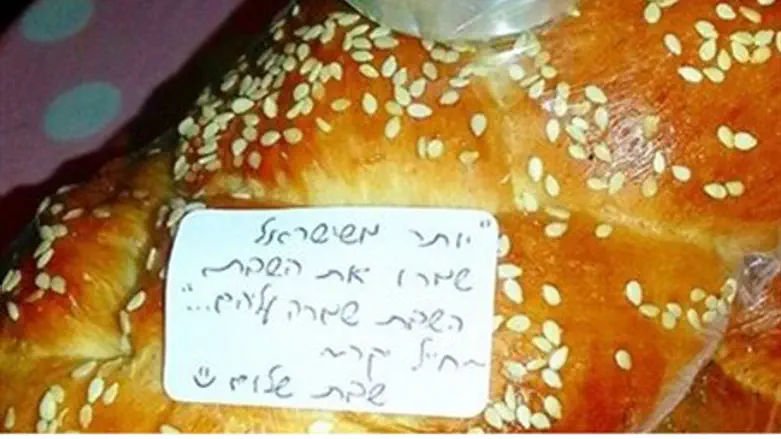 "יותר משישראל
שמרו את השבת,
השבת שמרה עליהם..."
שבת שלום ☺